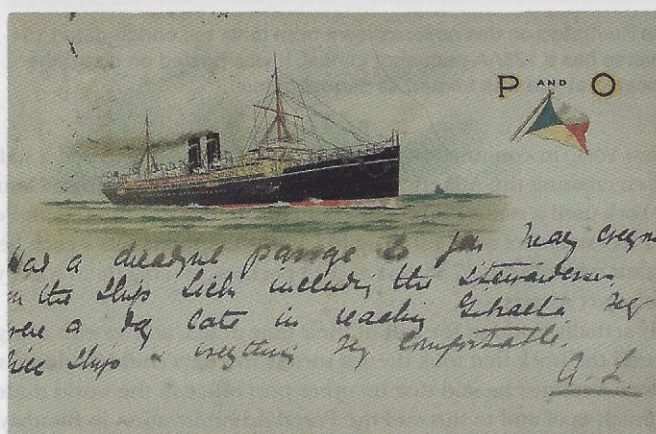 P AND O
Had a dreadful passage so far nearly everyone
on the ship sick including the Stewardesses,
were a day late in reaching Gibralta very
nice ship & everything very comfortable.
A.L.